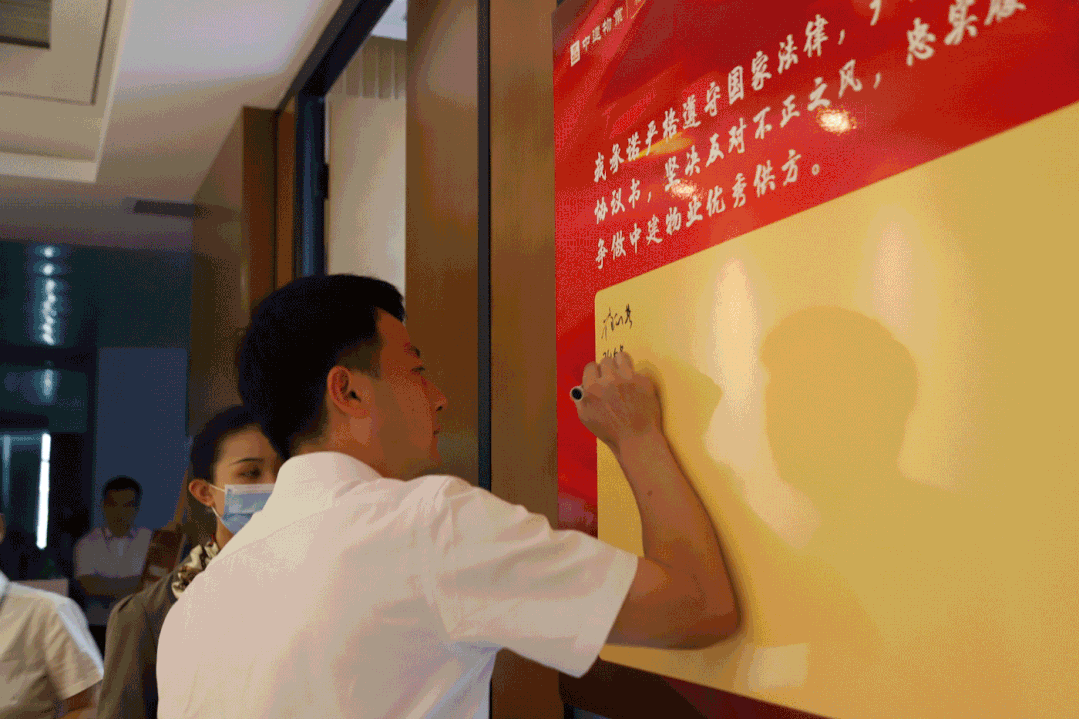 中建物业
我承诺严格遵守国家法律，
协议书，坚决反对不正之风，忠实履
争做中建物业优秀供方。